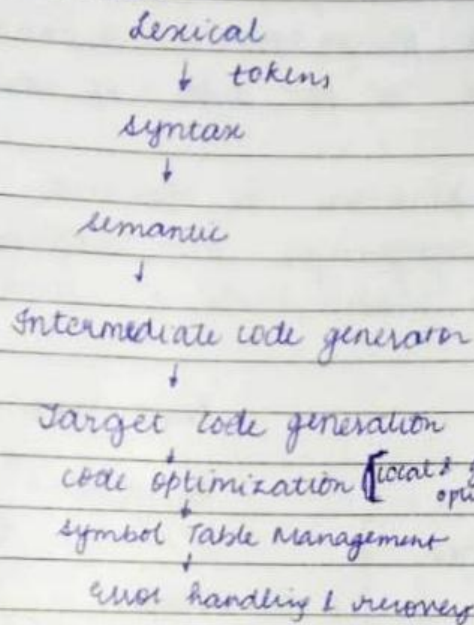 Lexical
↓ tokens
Syntax
↓
Semantic
↓
Intermediate code generator
↓
Target code generation
↓
code optimization [local &
↓
Symbol Table Management
↓
Error handling & recovery